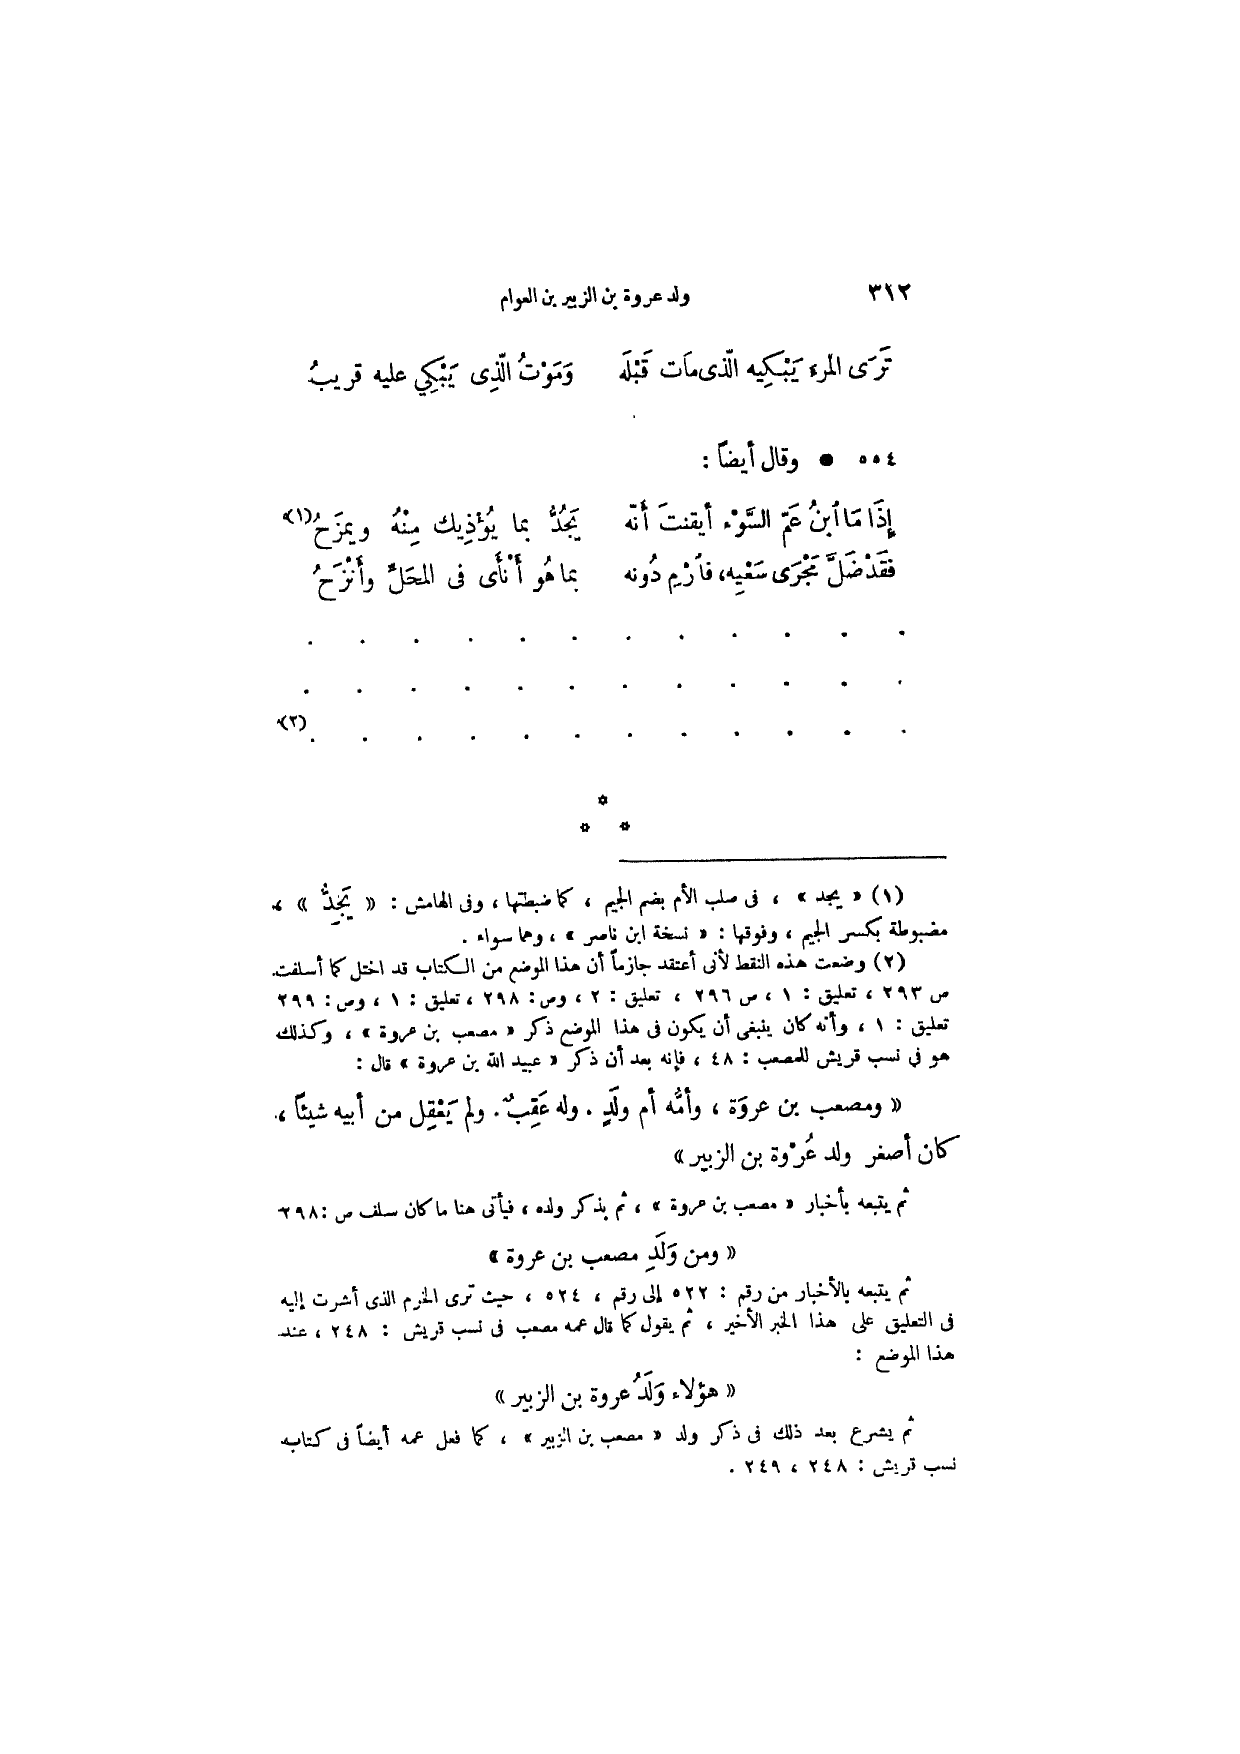 ٣١٢ ولد عروة بن الزبير بن العوام
تَرَى المرء يَبْكِيه الّذى مَات قَبْلَه وَمَوْتُ الّذِى يَبْكِي عليه قريبُ
٥٥٤ ● وقال أيضاً :
إِذَا مَا ٱبنُ عَمّ السَّوْء أيقنتَ أَنّه يَجُدُّ بما يُؤْذِيك مِنْهُ ويمزَحُ (١)
فقَدْ ضَلَّ مَجْرَى سَعْيِه، فٱرْمِ دُونه بما هُو أَنْأَى فى المحَلِّ وأَنْزَحُ
. . . . . . . . . . . .
. . . . . . . . . . . .
. . . . . . . . . . . . (٢)
*
* *
(١) « يجد » ، فى صلب الأم بضم الجيم ، كما ضبطتها ، وفى الهامش : « يَجِدُّ » ،
مضبوطة بكسر الجيم ، وفوقها : « نسخة ابن ناصر » ، وهما سواء .
(٢) وضعت هذه النقط لأنى أعتقد جازماً أن هذا الموضع من الكتاب قد اختل كما أسلفت
ص ٢٩٣ ، تعليق : ١ ، ص ٢٩٦ ، تعليق : ٢ ، وص : ٢٩٨ ، تعليق : ١ ، وص : ٢٩٩
تعليق : ١ ، وأنه كان ينبغى أن يكون فى هذا الموضع ذكر « مصعب بن عروة » ، وكذلك
هو فى نسب قريش للمصعب : ٤٨ ، فإنه بعد أن ذكر « عبيد الله بن عروة » قال :
« ومصعب بن عروَة ، وأمُّه أم ولَدٍ . وله عَقِبٌ . ولم يَعْقِل من أبيه شيئاً ،
كان أصغر ولد عُرْوة بن الزبير »
ثم يتبعه بأخبار « مصعب بن عروة » ، ثم يذكر ولده ، فيأتى هنا ما كان سلف ص : ٢٩٨
« ومن وَلَدِ مصعب بن عروة »
ثم يتبعه بالأخبار من رقم : ٥٢٢ إلى رقم ، ٥٢٤ ، حيث ترى الخرم الذى أشرت إليه
فى التعليق على هذا الخبر الأخير ، ثم يقول كما قال عمه مصعب فى نسب قريش : ٢٤٨ ، عند
هذا الموضع :
« هؤلاء وَلَدُ عروة بن الزبير »
ثم يشرع بعد ذلك فى ذكر ولد « مصعب بن الزبير » ، كما فعل عمه أيضاً فى كتاب
نسب قريش : ٢٤٨ ، ٢٤٩ .